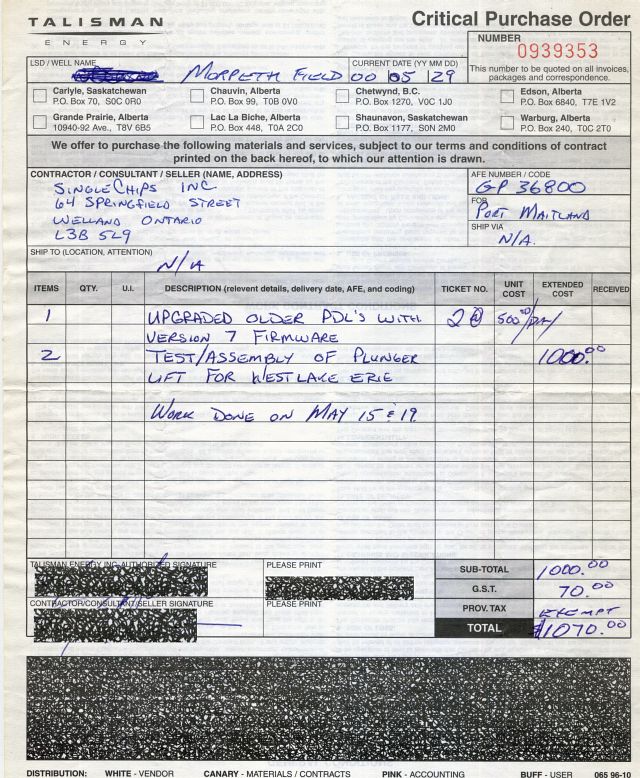 TALISMAN
ENERGY
Critical Purchase Order
NUMBER
0939353
This number to be quoted on all invoices, packages and correspondence.
LSD / WELL NAME
MORPETH FIELD
CURRENT DATE (YY MM DD)
00 05 29
Carlyle, Saskatchewan
P.O. Box 70, S0C 0R0
Chauvin, Alberta
P.O. Box 99, T0B 0V0
Chetwynd, B.C.
P.O. Box 1270, V0C 1J0
Edson, Alberta
P.O. Box 6840, T7E 1V2
Grande Prairie, Alberta
10940-92 Ave., T8V 6B5
Lac La Biche, Alberta
P.O. Box 448, T0A 2C0
Shaunavon, Saskatchewan
P.O. Box 1177, S0N 2M0
Warburg, Alberta
P.O. Box 240, T0C 2T0
We offer to purchase the following materials and services, subject to our terms and conditions of contract
printed on the back hereof, to which our attention is drawn.
CONTRACTOR / CONSULTANT / SELLER (NAME, ADDRESS)
SINGLECHIPS INC
64 SPRINGFIELD STREET
WELLAND ONTARIO
L3B 5L9
AFE NUMBER / CODE
GP 36800
FOR
PORT MAITLAND
SHIP VIA
N/A.
SHIP TO (LOCATION, ATTENTION)
N/A
ITEMS QTY. U.I. DESCRIPTION (relevent details, delivery date, AFE, and coding) TICKET NO. UNIT COST EXTENDED COST RECEIVED
1 UPGRADED OLDER PDL'S WITH 2@ 500.00/DAY
VERSION 7 FIRMWARE
2 TEST/ASSEMBLY OF PLUNGER 1000.00
LIFT FOR WEST LAKE ERIE
WORK DONE ON MAY 15 & 19
TALISMAN ENERGY INC. AUTHORIZED SIGNATURE
PLEASE PRINT
CONTRACTOR/CONSULTANT/SELLER SIGNATURE
PLEASE PRINT
SUB-TOTAL 1000.00
G.S.T. 70.00
PROV. TAX EXEMPT
TOTAL $1070.00
DISTRIBUTION: WHITE - VENDOR CANARY - MATERIALS / CONTRACTS PINK - ACCOUNTING BUFF - USER 065 96-10